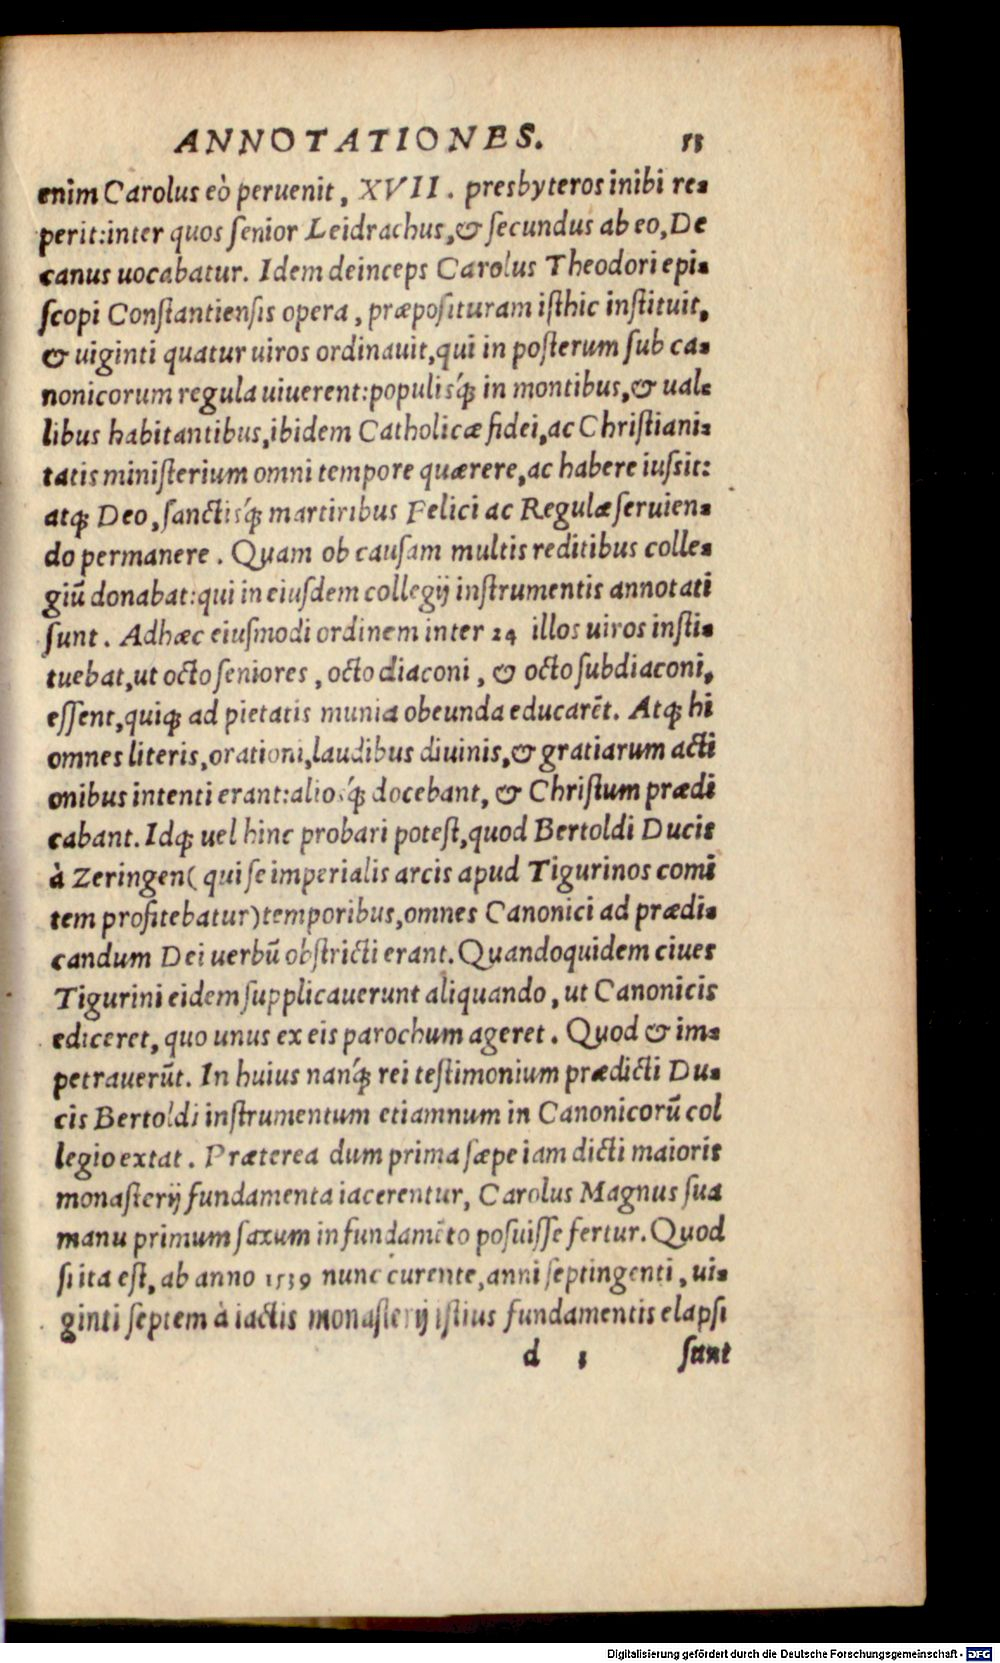 ANNOTATIONES. 55
enim Carolus eò peruenit, XVII. presbyteros inibi re⸗
perit:inter quos ſenior Leidrachus,& ſecundus ab eo,De
canus uocabatur. Idem deinceps Carolus Theodori epi⸗
ſcopi Conſtantienſis opera, præpoſituram iſthic inſtituit,
& uiginti quatur uiros ordinauit,qui in poſterum ſub ca⸗
nonicorum regula uiuerent:populisq́ꝫ in montibus,& ual⸗
libus habitantibus,ibidem Catholicæ fidei,ac Chriſtiani⸗
tatis miniſterium omni tempore quærere,ac habere iuſsit:
atqꝫ Deo,ſanctisq́ꝫ martiribus Felici ac Regulæ ſeruien⸗
do permanere. Quam ob cauſam multis reditibus colle⸗
giũ donabat:qui in eiuſdem collegij inſtrumentis annotati
ſunt. Adhæc eiuſmodi ordinem inter 24 illos uiros inſti⸗
tuebat,ut octo ſeniores, octo diaconi, & octo ſubdiaconi,
eſſent,quiqꝫ ad pietatis munia obeunda educarẽt. Atqꝫ hi
omnes literis,orationi,laudibus diuinis,& gratiarum acti
onibus intenti erant:aliosq́ꝫ docebant, & Chriſtum prædi
cabant.Idqꝫ uel hinc probari poteſt,quod Bertoldi Ducis
à Zeringen( qui ſe imperialis arcis apud Tigurinos comi
tem profitebatur)temporibus,omnes Canonici ad prædi⸗
candum Dei uerbũ obſtricti erant.Quandoquidem ciues
Tigurini eidem ſupplicauerunt aliquando, ut Canonicis
ediceret, quo unus ex eis parochum ageret. Quod & im⸗
petrauerũt. In huius nanq́ꝫ rei teſtimonium prædicti Du⸗
cis Bertoldi inſtrumentum etiamnum in Canonicorũ col
legio extat. Præterea dum prima ſæpe iam dicti maioris
monaſterij fundamenta iacerentur, Carolus Magnus ſua
manu primum ſaxum in fundamẽto poſuiſſe fertur.Quod
ſi ita eſt, ab anno 1539 nunc curente,anni ſeptingenti, ui⸗
ginti ſeptem à iactis monaſterij iſtius fundamentis elapſi
d 5 ſunt
Digitalisierung gefördert durch die Deutsche Forschungsgemeinschaft - DFG